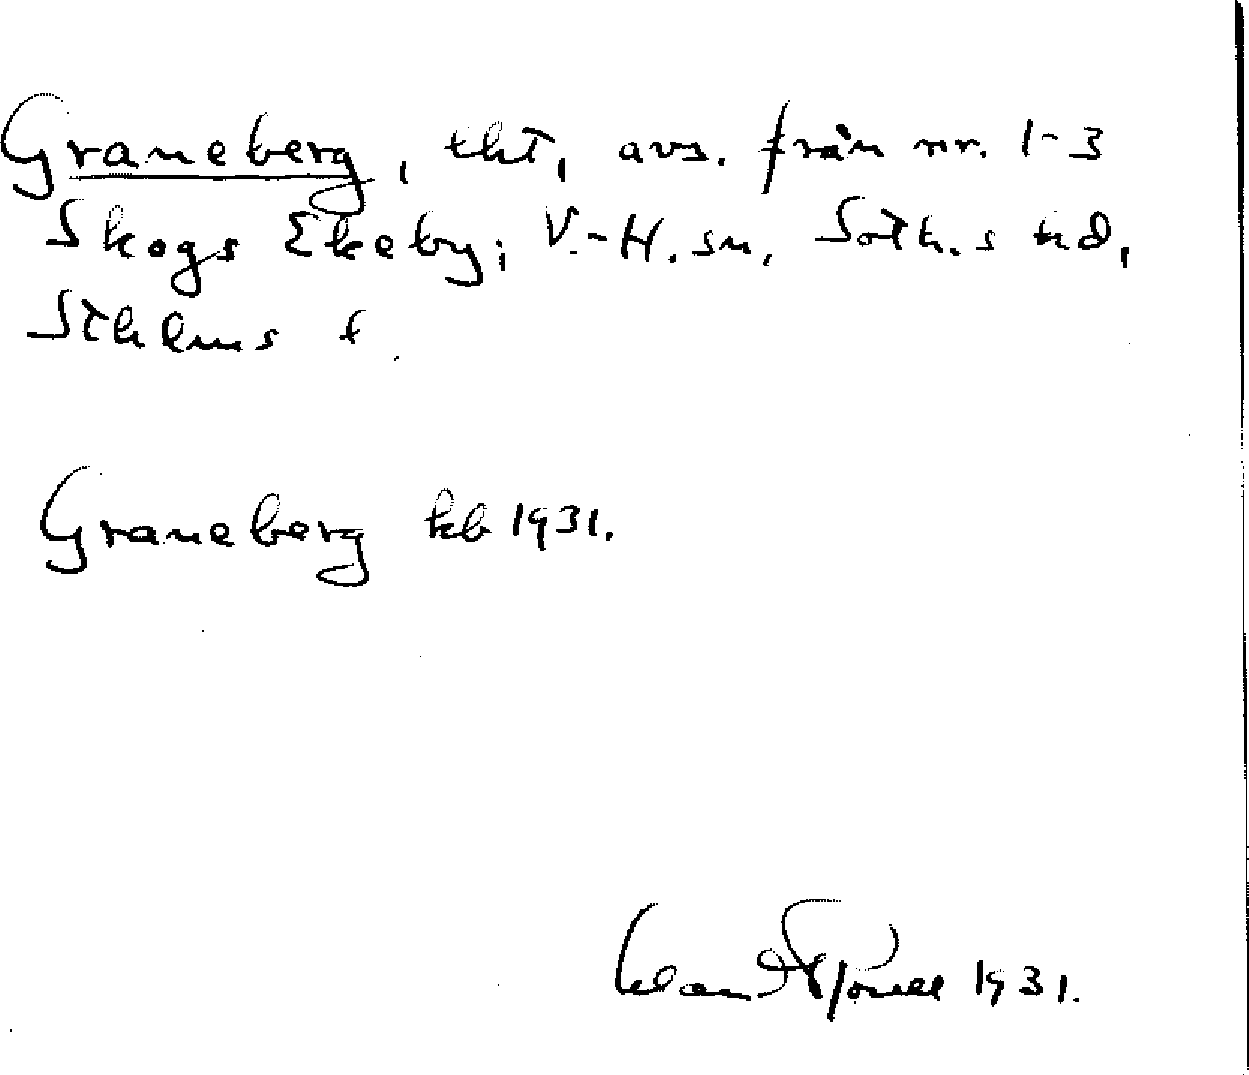 Graneberg, lht, avs. från nr. 1-3
Skogs Ekeby; V.-H. sn, Soth.s hd,
Sthlms l.
Graneberg kb 1931.
1931.